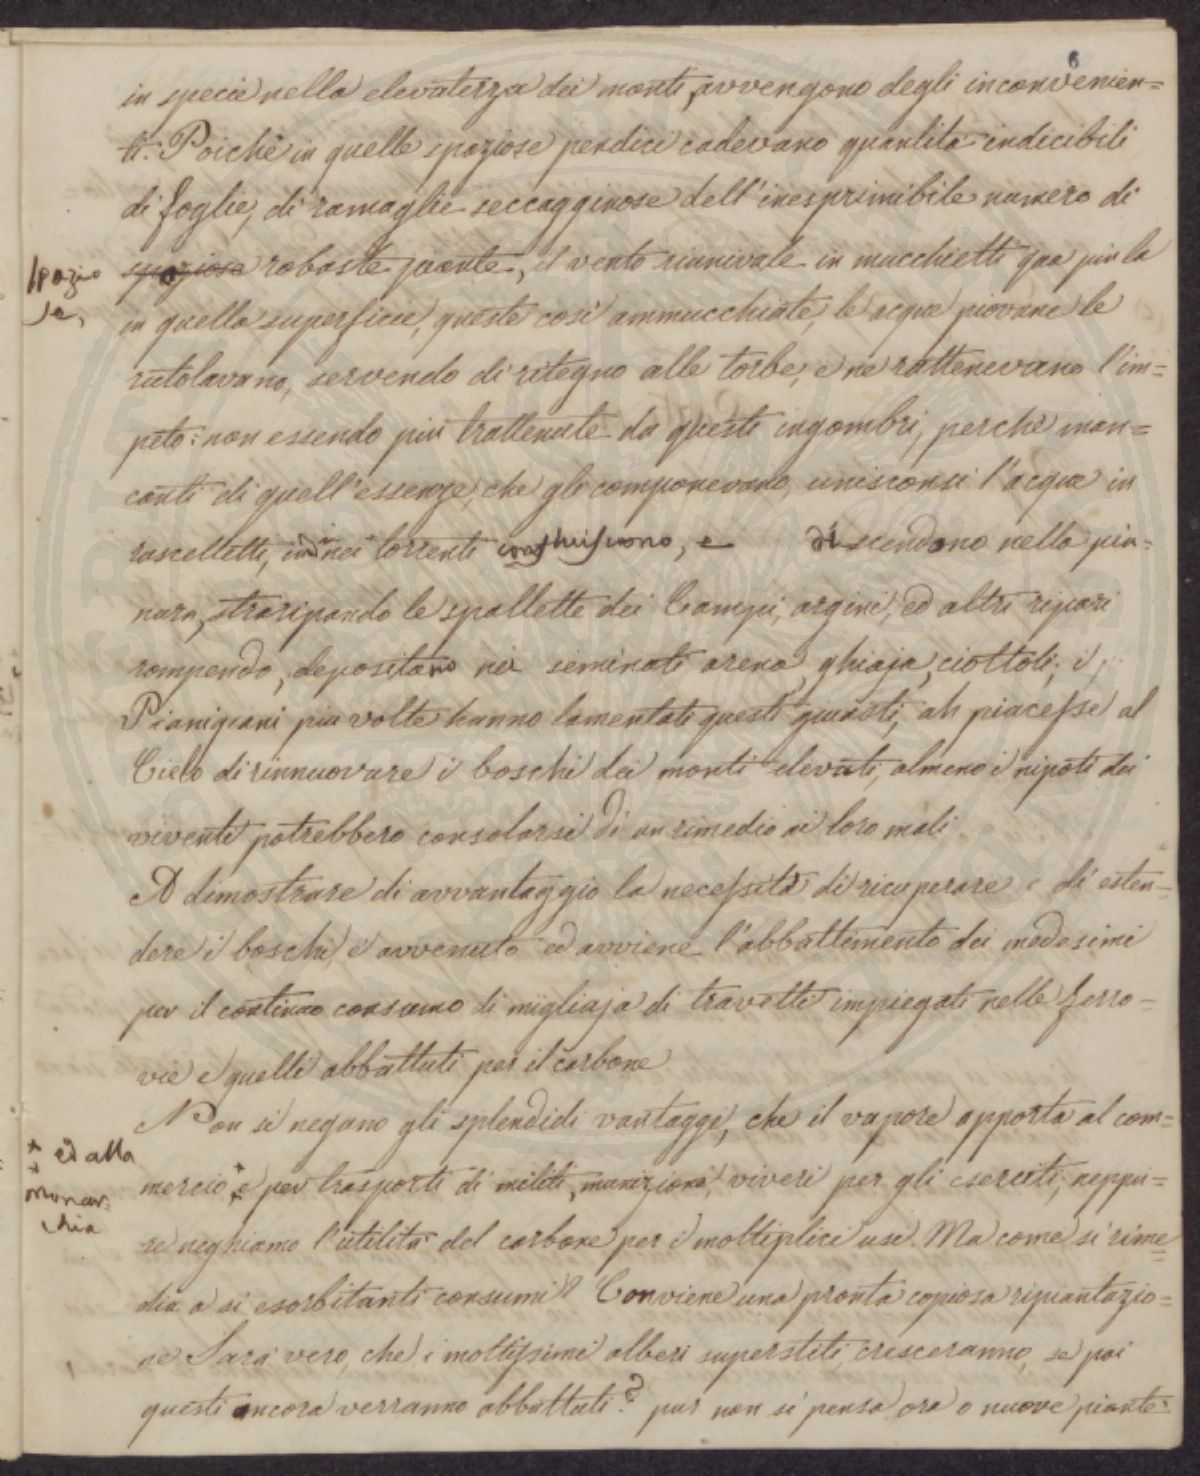 6
in specie nella elevatezza dei monti, avvengono degli inconvenien=
ti. Poichè in quelle spaziose pendici cadevano quantità indicibili
di foglie, di ramaglie seccagginose dell'inesprimibile numero di
spazio
se,
spaziose robuste piante, il vento riunivale in mucchietti qua più la
in quella superficie, queste così ammucchiate, le acque piovane le
rutolavano, servendo di ritegno alle torbe, e ne rattenevano l'im=
peto: non essendo più trattenute da questi ingombri, perchè man=
canti di quell'essenze, che gli componevano, unisconsi l'acque in
rascelletti, indi nei torrenti, e discendono nella pia=
nura, straripando le spallette dei Campi, argini, ed altri ripari
rompendo, depositano nei seminati arena, ghiaja, ciottoli; i
Pianigiani più volte hanno lamentati questi guasti, ah piacesse al
Cielo di rinnuovare i boschi dei monti elevati, almeno i nipoti dei
viventi potrebbero consolarsi di un rimedio ai loro mali
A dimostrare di avvantaggio la necessità di ricuperare e di esten=
dere i boschi è avvenuto ed avviene l'abbattimento dei medesimi
per il continuo consumo di migliaja di travetti impiegati nelle ferro=
vie e quelli abbattuti per il carbone
Non si negano gli splendidi vantaggi, che il vapore apporta al com=
ed alla
monar=
chia
mercio e per trasporti di militi, munizioni, viveri per gli eserciti, neppu=
re neghiamo l'utilità del carbone per i moltiplici usi. Ma come si rime
dia a si esorbitanti consumi? Conviene una pronta copiosa ripiantazio=
ne Sarà vero, che i moltissimi alberi superstiti cresceranno, se poi
questi ancora verranno abbattuti? pur non si pensa ora a nuove piante